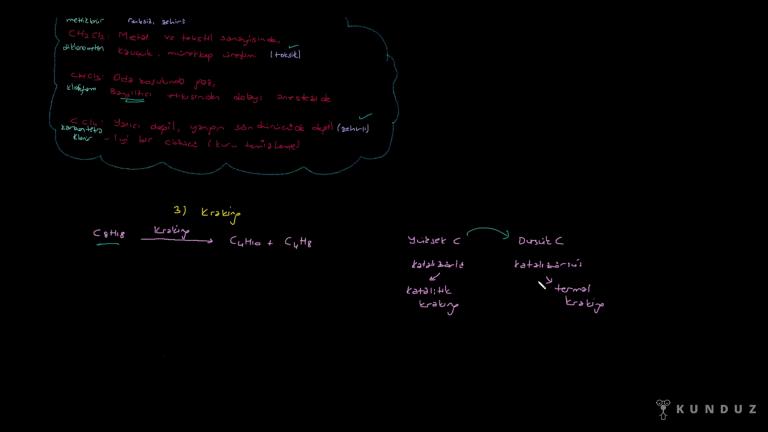 renksiz, zehirli
CH₂Cl₂: Metal ve tekstil sanayisinde,
diklorometan kauçuk, mürekkep üretim (toksik)
CHCl₃: Oda koşulunda gaz,
kloroform Bayıltıcı etkisinden dolayı anestezide
CCl₄: Yanıcı değil, yangın söndürücüde değil (zehirli)
karbontetra
klorür - İyi bir çözücü (kuru temizleme)
3) Kraking
C₈H₁₈ Kraking C₄H₁₀ + C₄H₈
Yüksek C Düşük C
katalizörlü katalizörsüz
katalitik termal
kraking kraking
KUNDUZ